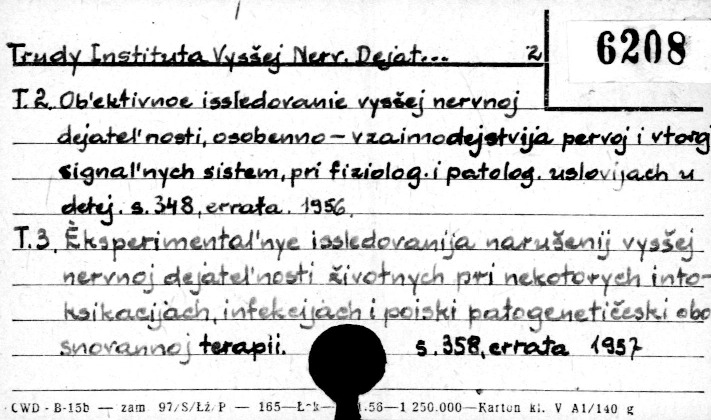 Trudy Instituta Vysšej Nerv. Dejat... 2
6208
T.2. Ob'ektivnoe issledovanie vysšej nervnoj
dejatel'nosti, osobenno – vzaimodejstvija pervoj i vtoroj
signal'nych sistem, pri fiziolog. i patolog. uslovijach u
detej. s. 348, errata. 1956.
T.3. Ėksperimental'nye issledovanija narušenij vysšej
nervnoj dejatel'nosti životnych pri nekotorych into-
ksikacijach, infekcijach i poiski patogenetičeski obo
snovannoj terapii. s. 358, errata 1957
CWD - B-15b — zam 97/S/Łż/P — 165—Ł-k— 1.56—1 250.000—Karton kl. V A1/140 g